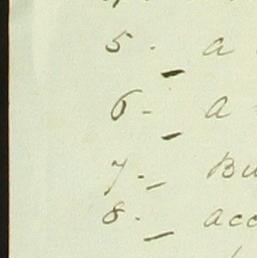 5 - a
6 - a
7 - Bu
8 - acc